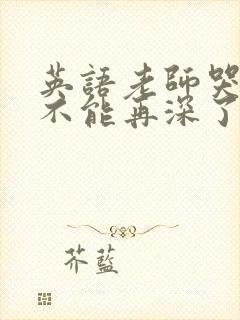 英語老師哭
不能再深了
芥藍